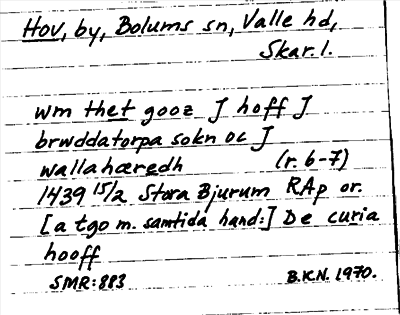 Hov, by, Bolums sn, Valle hd,
Skar. l.
wm thet gooz J hoff J
brwddatorpa sokn oc J
wallahæredh (r. 6-7)
1439 15/2 Stora Bjurum RAp or.
[a tgo m. samtida hand:] De curia
hooff
SMR: 883 B.K.N. 1970.